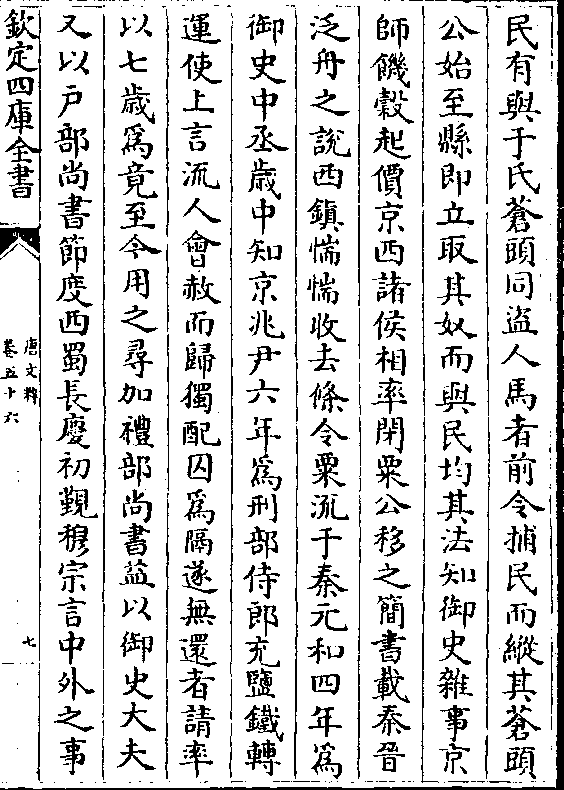 民有與于氏蒼頭同盜人馬者前令捕民而縱其蒼頭
公始至縣即立取其奴而與民均其法知御史雜事京
師饑穀起價京西諸侯相率閉粟公移之簡書載秦晉
泛舟之說西鎮惴惴收去條令粟流于秦元和四年為
御史中丞歲中知京兆尹六年為刑部侍郎充鹽鐵轉
運使上言流人會赦而歸獨配囚為隔遂無還者請率
以七歲為竟至今用之尋加禮部尚書益以御史大夫
又以戶部尚書節度西蜀長慶初覲穆宗言中外之事
欽定四庫全書
唐文粹
卷五十六
七